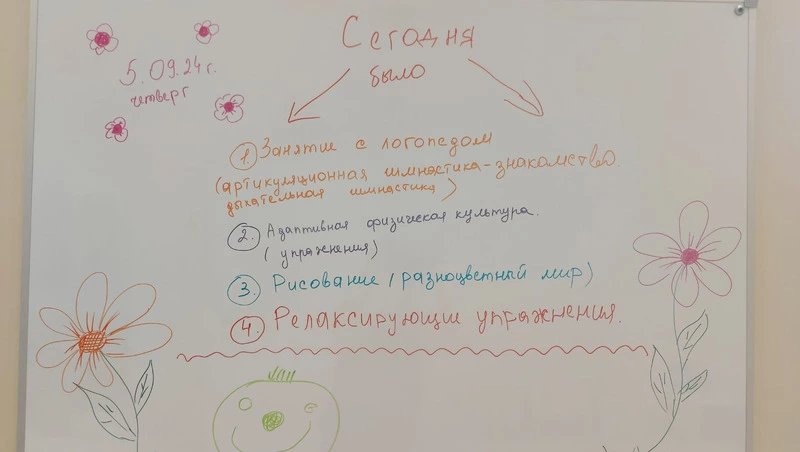 Сегодня
было
5.09.24г.
четверг
1. Занятие с логопедом
(артикуляционная гимнастика-знакомство.
дыхательная гимнастика)
2. Адаптивная физическая культура.
(упражнения)
3. Рисование (разноцветный мир)
4. Релаксирующие упражнения.